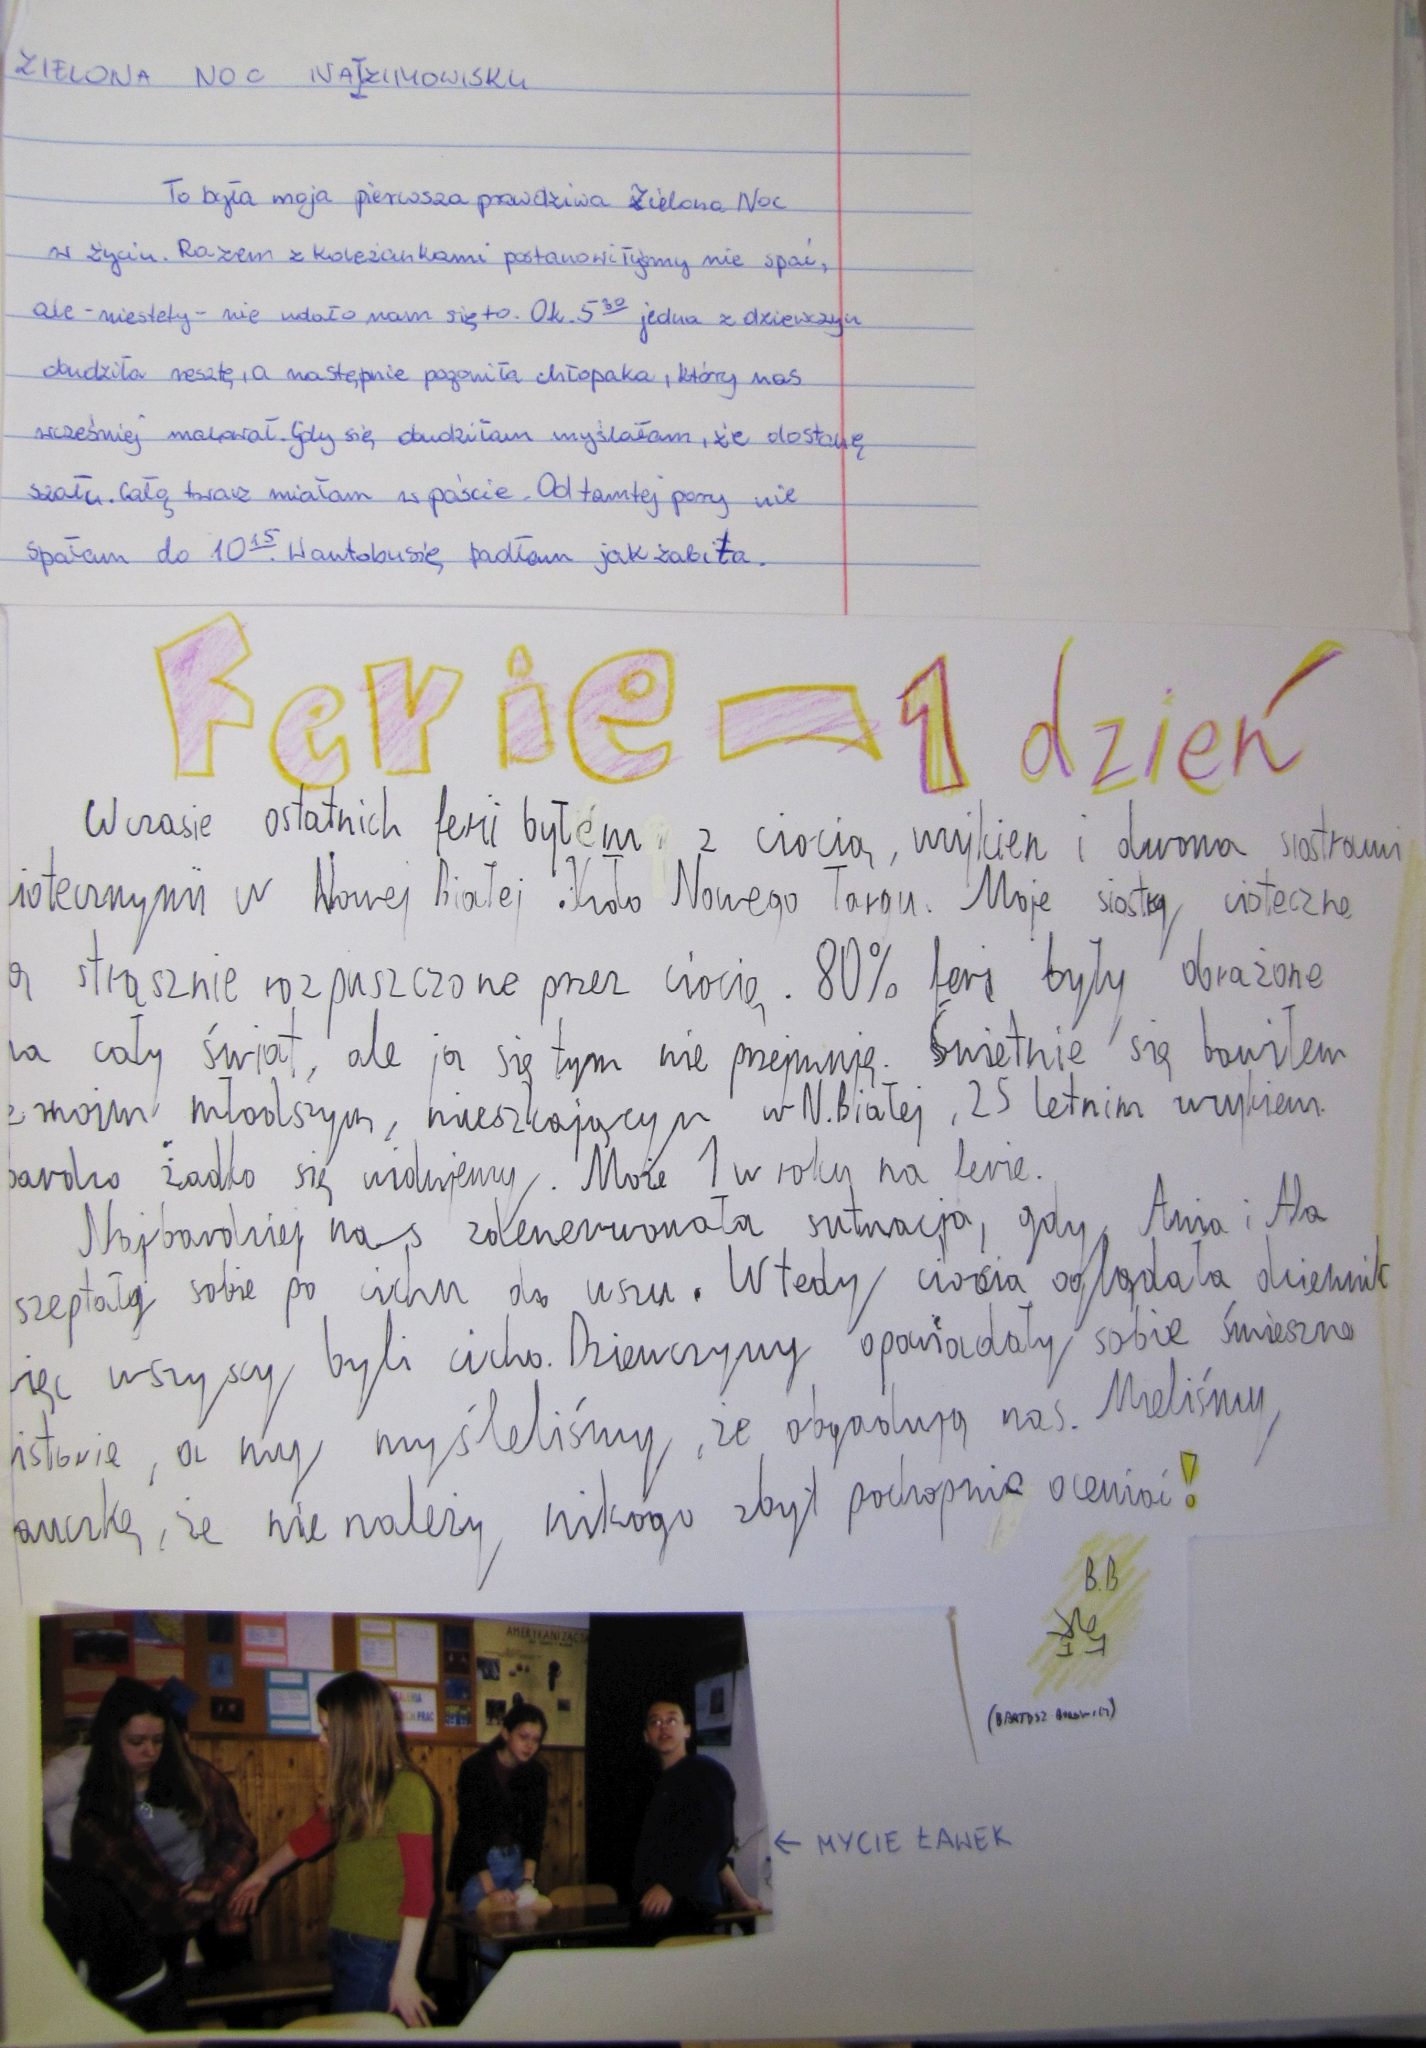 ZIELONA NOC NA ZIMOWISKU
To była moja pierwsza prawdziwa Zielona Noc
w życiu. Razem z koleżankami postanowiłyśmy nie spać,
ale - niestety - nie udało nam się to. Ok. 5³⁰ jedna z dziewczyn
obudziła resztę, a następnie pogoniła chłopaka, który nas
wcześniej malował. Gdy się obudziłam myślałam, że dostanę
szału. Całą twarz miałam w paście. Od tamtej pory nie
spałam do 10¹⁵. W autobusie padłam jak zabita.
Ferie - 1 dzień
W czasie ostatnich ferii byłem z ciocią, wujkiem i dwoma siostrami
iotecznymi w Nowej Białej koło Nowego Targu. Moje siostry cioteczne
ą strasznie rozpuszczone przez ciocię. 80% ferii były obrażone
na cały świat, ale ja się tym nie przejmuję. Świetnie się bawiłem
z moim młodszym, mieszkającym w N.Białej, 25 letnim wujkiem.
bardzo żadko się widujemy. Może 1 w roku na ferie.
Najbardziej nas zdenerwowała sytuacja, gdy Ania i Ala
szeptały sobie po cichu do uszu. Wtedy ciocia oglądała dziennik
więc wszyscy byli cicho. Dziewczyny opowiadały sobie śmieszne
istorie, a my myśleliśmy, że obgadują nas. Mieliśmy
auczkę, że nie należy nikogo zbyt pochopnie oceniać!
B.B
(BARTOSZ
AMERYKANIZACJA
GALERIA
PRAC
← MYCIE ŁAWEK